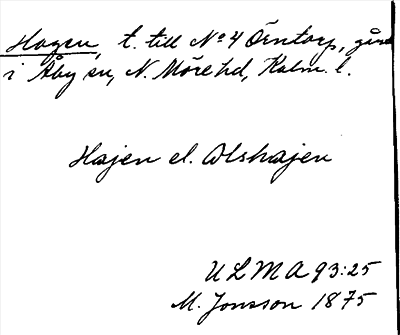 Hagen, t. till No 4 Örntorp, gård
i Åby sn, N. Möre hd, Kalm. l.
Hajen el. Olshajen
ULMA 93:25
M. Jonsson 1875